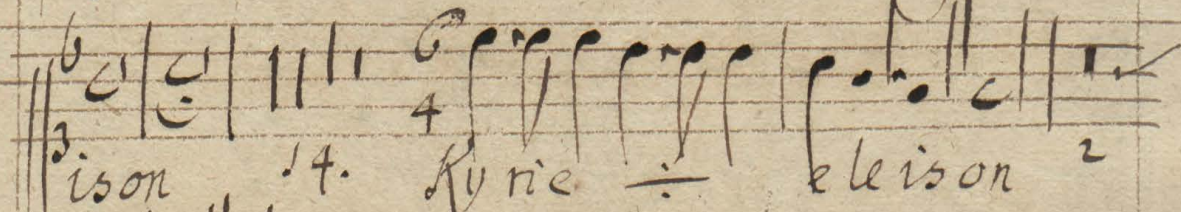 6 6
3 4
ison 14. Kyrie ÷ eleison 2